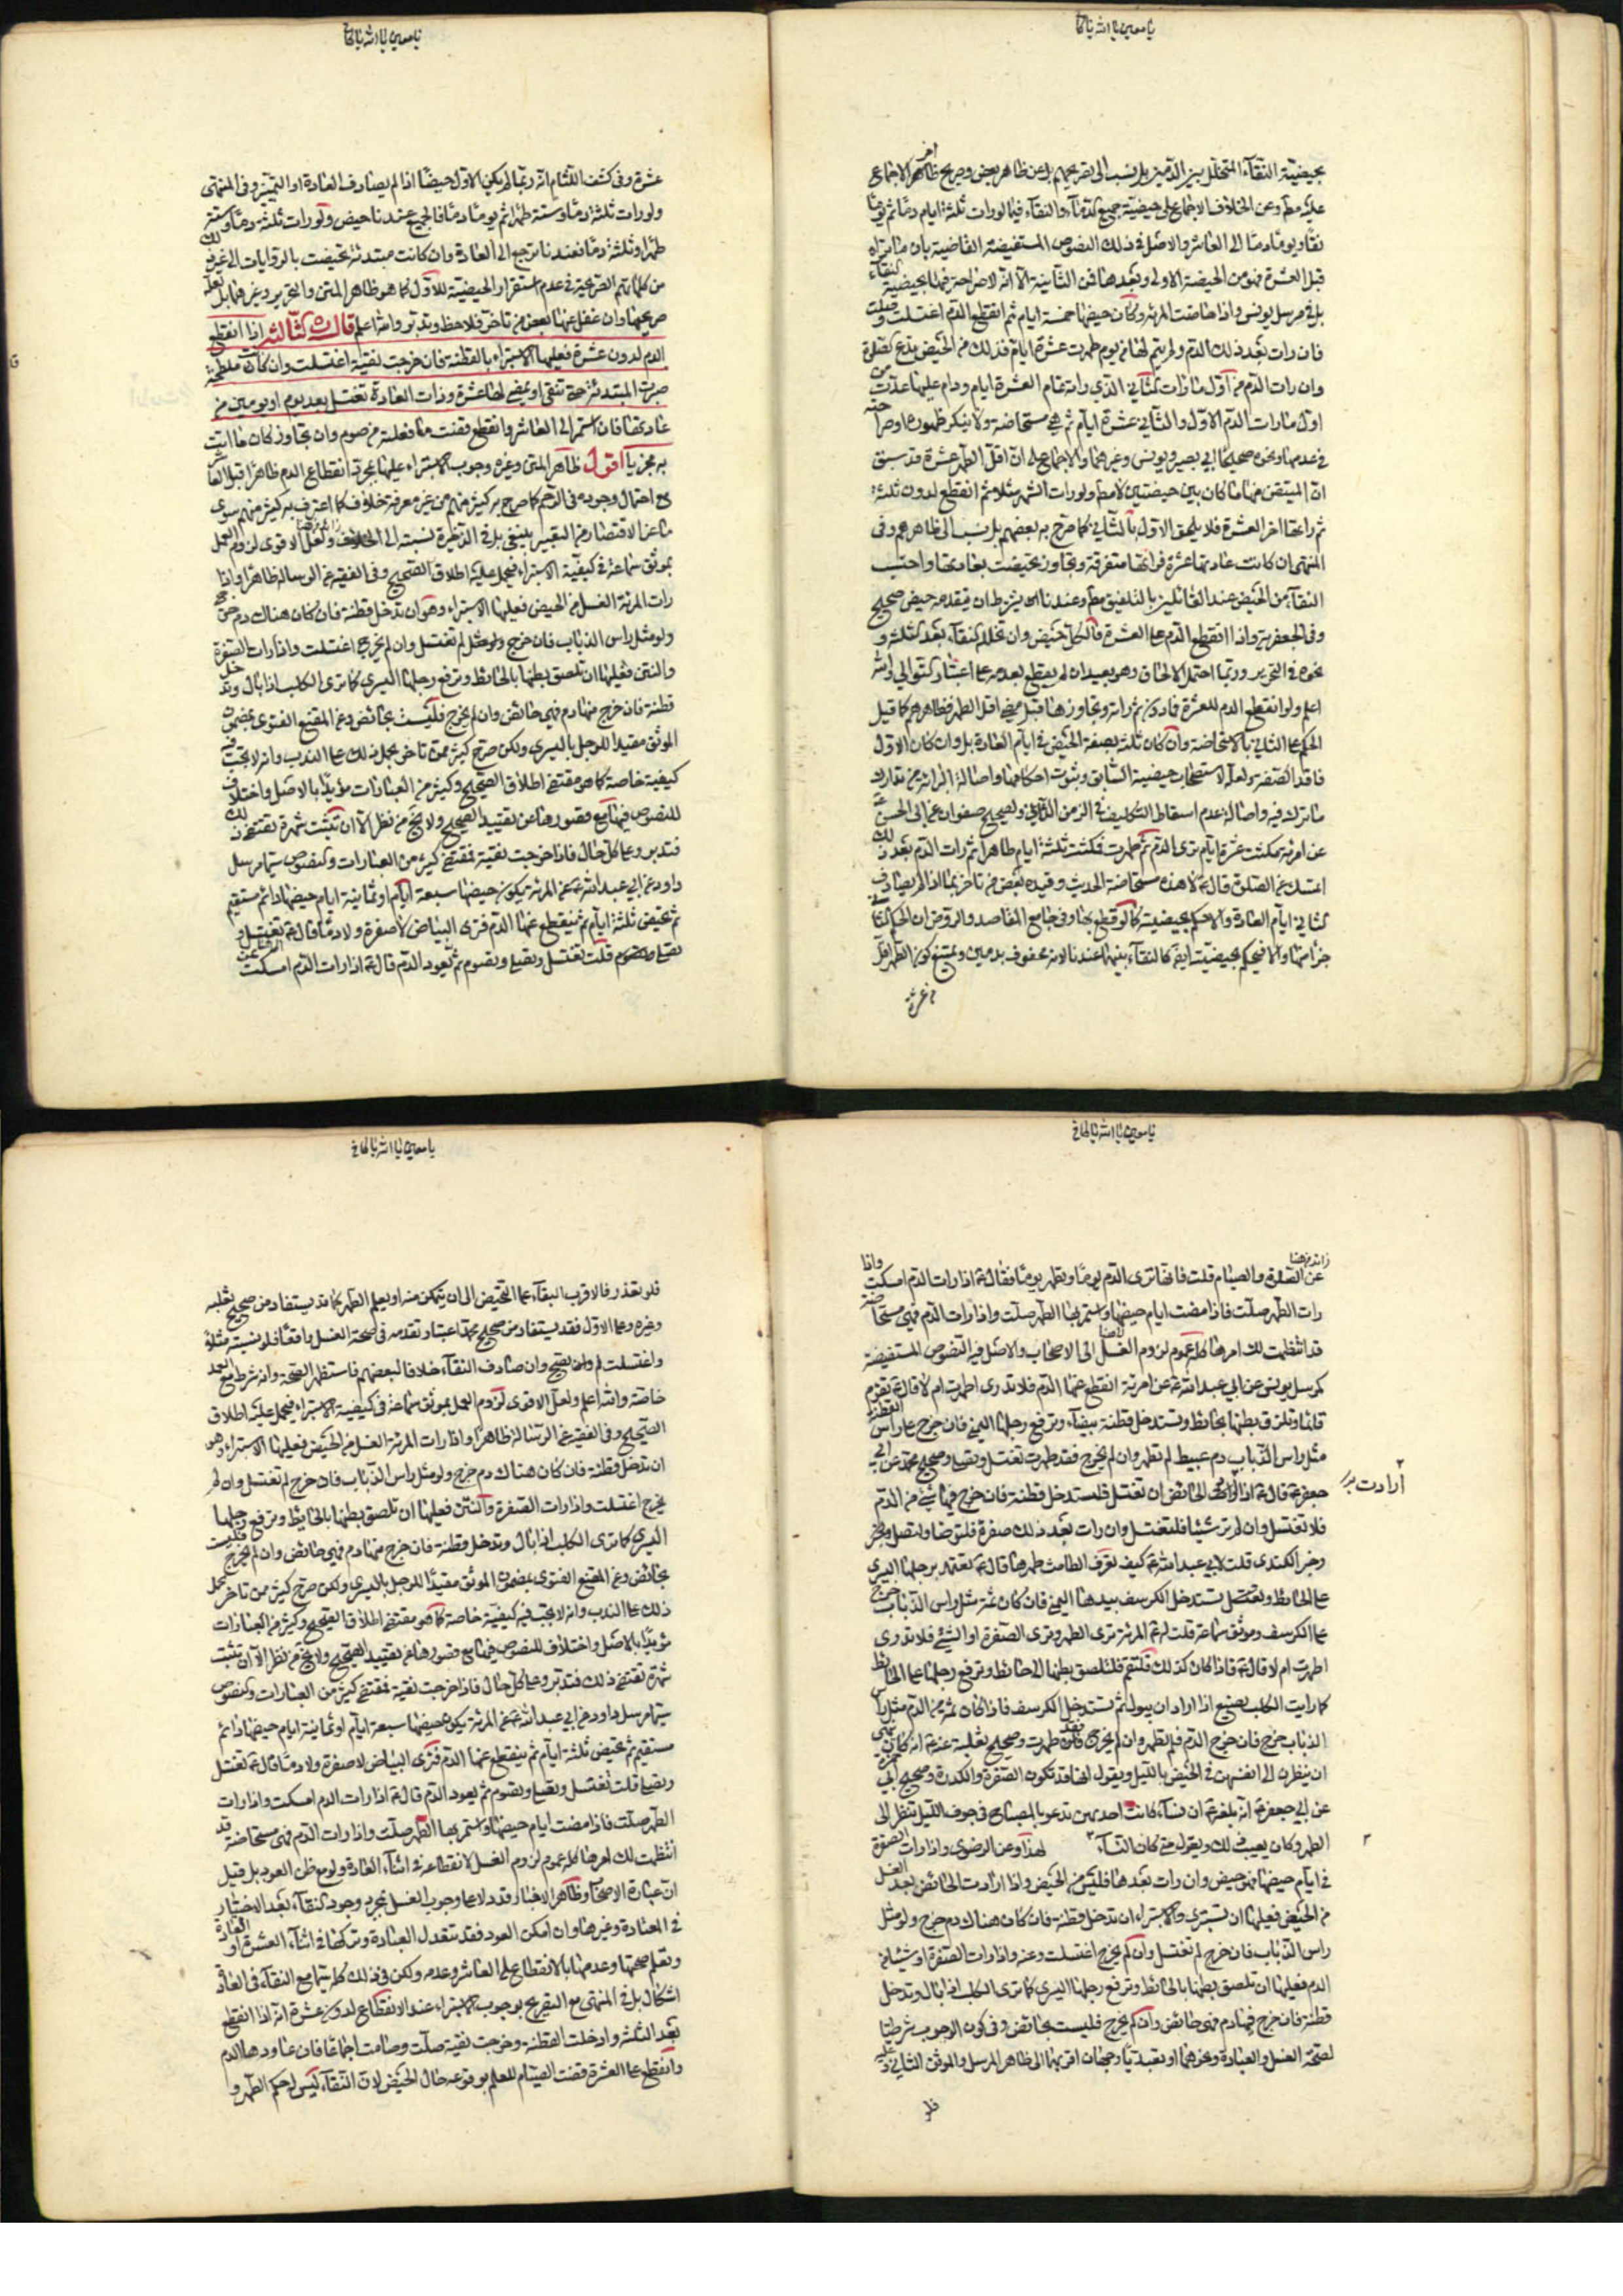 يا معين يا الله يا كافي
بحيضية النقاء المتخلل بين الدمين بل نسب الى تصريحهم بل عن ظاهر بعض وصريح اخر الاجماع
عليه مط وعن الخلاف الاجماع على حيضية جميع الدماء والنقاء فيما لو رات ثلثة ايام دما ثم يوما
نقاء ويوما دما الى العاشر والاصل في ذلك النصوص المستفيضة القاضية بان ما تراه
قبل العشرة فهو من الحيضة الاولى وبعدها فمن الثانية الا انه لا صراحة فيها بحيضية النقاء
بل في مرسل يونس واذا حاضت المرئة وكان حيضها خمسة ايام ثم انقطع الدم اغتسلت وصلت
فان رات بعد ذلك الدم ولم يتم لها من يوم طهرت عشرة ايام فذلك من الحيض تدع الصلوة
وان رات الدم من اول ما رات الثاني الذي راته تمام العشرة ايام ودام عليها عدت من
اول ما رات الدم الاول والثاني عشرة ايام ثم هي مستحاضة ولا ينكر ظهوره او صراحته
في عدمها ونحوه صحيحا ابي بصير ويونس وغيرهما والاجماع على ان اقل الطهر عشرة قد سبق
ان المتيقن منها ما كان بين حيضتين لا مط ولو رات الشهر مثلا ثم انقطع لدون ثلثة
ثم راتها اخر العشرة فلا يلحق الاول بالثاني كما صرح به بعضهم بل نسب الى ظاهرهم وفي
المنتهى ان كانت عادتها عشرة فراتها متفرقة وتجاوز تحيضت بعادتها واحتسب
النقاء من الحيض عند القائلين بالتلفيق مط وعندنا يشترط ان يتقدمه حيض صحيح
وفي الجعفرية واذا انقطع الدم على العشرة فالكل حيض وان تخلل النقاء بعد الثلثة و
نحوه في التحرير وربما احتمل الالحاق وهو بعيد ان لم يقطع بعدمه على اعتبار التوالي والله
اعلم ولو انقطع الدم للعشرة فادون ثم راته وتجاوزها قبل مضي اقل الطهر فظاهرهم كما قيل
الحكم على الثاني بالاستحاضة وان كان ثلثة بصفة الحيض في ايام العادة بل وان كان الاول
فاقد الصفة ولعله لاستصحاب حيضية السابق وثبوت احكامها واصالة البرائة من تدارك
ما ترك فيه واصالة عدم اسقاط التكليف في الزمن الثاني ولصحيح صفوان عن ابي الحسن ع
عن امرئة مكثت عشرة ايام ترى الدم ثم طهرت فمكثت ثلثة ايام طاهرا ثم رات الدم بعد ذلك
اتمسك عن الصلوة قال ع لا هذه مستحاضة الحديث وقيده بعض من تاخر بما اذا لم يصادف
الثاني ايام العادة والا حكم بحيضيته كما لو قطع بها وفي جامع المقاصد والروض ان الحكم
جزا منها والا فيحكم بحيضيته ايضا كالنقاء بينهما عندنا لانه محفوف بدمين ويمتنع كون الطهر اقل
من عشرة
يا معين يا الله يا كافي
عشرة وفي كشف اللثام انه ربما لم يكن الاول حيضا اذا لم يصادف العادة او التمييز وفي المنتهى
ولو رات ثلثة دما وستة طهرا ثم يوما دما فالجميع عندنا حيض ولو رات ثلثة دما وستة
طهرا وثلثة دما فعندنا ترجع الى العادة وان كانت مبتدئة تحيضت بالروايات الى غير ذلك
من كلماتهم الصريحة في عدم استقرار الحيضية للاول كما هو ظاهر المتن والتحرير وغيرهما بل لعله
صريحها وان غفل عنها بعض من تاخر فلاحظ وتدبر والله اعلم قال ره الثالث اذا انقطع
الدم لدون عشرة فعليها الاستبراء بالقطنة فان خرجت نقية اغتسلت وان كانت ملطخة
صبرت المبتدئة حتى تنقى او يمضي لها عشرة وذات العادة تغتسل بعد يوم او يومين من
عادتها فان استمر الى العاشر وانقطع قضت ما فعلته من صوم وان تجاوز كان ما اتت
به مجزيا اقول ظاهر المتن وغيره وجوب الاستبراء عليها بمجرد انقطاع الدم ظاهرا قبل العاشر
مع احتمال وجوده في الرحم كما صرح به كثير منهم من غير معرفة خلاف كما اعترف به كثير منهم سوى
ما عن الاقتصاد من التعبير بينبغي بل في الذخيرة نسبته الى الاصحاب ولعل الاقوى لزوم العمل
بموثق سماعة في كيفية الاستبراء فيحمل عليه اطلاق الصحيح وفي الفقيه عن الرسالة ظاهرا واذا
رات المرئة الغسل من الحيض فعليها الاستبراء وهو ان تدخل قطنة فان كان هناك دم خرج
ولو مثل راس الذباب فان خرج لم تغتسل وان لم يخرج اغتسلت واذا رات الصفرة
والنتن فعليها ان تلصق بطنها بالحائط وترفع رجلها اليسرى كما ترى الكلب اذا بال وتدخل
قطنة فان خرج منها دم فهي حائض وان لم يخرج فليست بحائض وعن المقنع الفتوى بمضمون
الموثق مقيدا للرجل باليسرى ولكن صرح كثير ممن تاخر بحمل ذلك على الندب وانه لا يجب فيه
كيفية خاصة كما هو مقتضى اطلاق الصحيح وكثير من العبارات مؤيدا بالاصل واختلاف
النصوص فيها مع قصورها عن تقييد الصحيح ولا يخ من نظر الا ان تثبت شهرة تقتضي ذلك
فتدبر وعلى كل حال فاذا خرجت نقية فمقتضى كثير من العبارات والنصوص سيما مرسل
داود عن ابي عبد الله ع عن المرئة يكون حيضها سبعة ايام او ثمانية ايام حيضها دائم مستقيم
ثم تحيض ثلثة ايام ثم ينقطع عنها الدم فترى البياض لا صفرة ولا دما قال ع تغتسل و
تصلي وتصوم قلت تغتسل وتصلي وتصوم ثم يعود الدم قال ع اذا رات الدم امسكت
يا معين يا الله يا كافي
زائد من هنا
عن الصلوة والصيام قلت فانها ترى الدم يوما وتطهر يوما فقال ع اذا رات الدم امسكت واذا
رات الطهر صلت فاذا مضت ايام حيضها واستمر بها الطهر صلت واذا رات الدم فهي مستحاضة
قد انتظمت لك امرها كله عموم لزوم الغسل الى الاصحاب والاصل فيه النصوص المستفيضة
كمرسل يونس عن ابي عبد الله ع عن امرئة انقطع عنها الدم فلا تدري اطهرت ام لا قال ع تقوم
قائما وتلزق بطنها بحائط وتستدخل قطنة بيضاء وترفع رجلها اليمنى فان خرج على راس القطنة
مثل راس الذباب دم عبيط لم تطهر وان لم يخرج فقد طهرت تغتسل وتصلي وصحيح محمد عن ابي
جعفر ع قال ع اذا ارادت الحائض ان تغتسل فلتستدخل قطنة فان خرج فيها شئ من الدم
ارادت
فلا تغتسل وان لم تر شيئا فلتغتسل وان رات بعد ذلك صفرة فلتتوضأ ولتصل وخبر
وخبر الكندي قلت لابي عبد الله ع كيف تعرف الطامث طهرها قال ع تعتمد برجلها اليسرى
على الحائط وتستدخل الكرسف بيدها اليمنى فان كان ثم مثل راس الذباب خرج
على الكرسف وموثق سماعة قلت له ع المرئة ترى الطهر وترى الصفرة او الشئ فلا تدري
اطهرت ام لا قال ع فاذا كان كذلك فلتقم فلتلصق بطنها الى حائط وترفع رجلها على الحائط
كما رايت الكلب يصنع اذا اراد ان يبول ثم تستدخل الكرسف فاذا كان ثم من الدم مثل راس
الذباب خرج فان خرج الدم فلم تطهر وان لم يخرج فقد طهرت وصحيح ثعلبة عنه ع انه كان ينهى
ان ينظرن الى انفسهن في الحيض بالليل ويقول انها قد تكون الصفرة والكدرة وصحيح ابي حمزة
عن ابي جعفر ع انه بلغه ع ان نساء كانت احديهن تدعو بالمصباح في جوف الليل تنظر الى
الطهر وكان يعيب ذلك ويقول متى كان النساء هذا وعن الرضوي واذا رات الصفرة
في ايام حيضها فهو حيض وان رات بعدها فليس من الحيض واذا ارادت الحائض بعد الغسل
من الحيض فعليها ان تستبرئ والاستبراء ان تدخل قطنة فان كان هناك دم خرج ولو مثل
راس الذباب فان خرج لم تغتسل وان لم يخرج اغتسلت وعنه واذا رات الصفرة او شيئا من
الدم فعليها ان تلصق بطنها بالحائط وترفع رجلها اليسرى كما ترى الكلب اذا بال وتدخل
قطنة فان خرج فيها دم فهي حائض وان لم يخرج فليست بحائض وفي كون الوجوب شرطيا
لصحة الغسل والعبادة ونحوهما او تعبديا وجهان اقربهما الى ظاهر المرسل والموثق الثاني وعليه
فلو
يا معين يا الله يا كافي
فلو تعذر فالاقرب البقاء على التحيض الى ان يتمكن منه او يعلم الطهر كما قد يستفاد من صحيح ثعلبة
وغيره وعلى الاول فقد يستفاد من صحيح محمد اعتبار تقدمه في صحة الغسل واقعا فلو نسيته مثلا
واغتسلت لم يصح وان صادف النقاء خلافا لبعضهم فاستظهر الصحة وانه شرط مع العمد
خاصة والله اعلم ولعل الاقوى لزوم العمل بموثق سماعة في كيفية الاستبراء فيحمل عليه اطلاق
الصحيح وفي الفقيه عن الرسالة ظاهرا واذا رات المرئة الغسل من الحيض فعليها الاستبراء وهو
ان تدخل قطنة فان كان هناك دم خرج ولو مثل راس الذباب فان خرج لم تغتسل وان لم
يخرج اغتسلت واذا رات الصفرة والنتن فعليها ان تلصق بطنها بالحائط وترفع رجلها
اليسرى كما ترى الكلب اذا بال وتدخل قطنة فان خرج منها دم فهي حائض وان لم يخرج فليست
بحائض وعن المقنع الفتوى بمضمون الموثق مقيدا للرجل باليسرى ولكن صرح كثير ممن تاخر بحمل
ذلك على الندب وانه لا يجب فيه كيفية خاصة كما هو مقتضى اطلاق الصحيح وكثير من العبارات
مؤيدا بالاصل واختلاف النصوص فيها مع قصورها عن تقييد الصحيح ولا يخ من نظر الا ان تثبت
شهرة تقتضي ذلك فتدبر وعلى كل حال فاذا خرجت نقية فمقتضى كثير من العبارات والنصوص
سيما مرسل داود عن ابي عبد الله ع عن المرئة يكون حيضها سبعة ايام او ثمانية ايام حيضها دائم
مستقيم ثم تحيض ثلثة ايام ثم ينقطع عنها الدم فترى البياض لا صفرة ولا دما قال ع تغتسل
وتصلي قلت تغتسل وتصلي وتصوم ثم يعود الدم قال ع اذا رات الدم امسكت واذا رات
الطهر صلت فاذا مضت ايام حيضها واستمر بها الطهر صلت واذا رات الدم فهي مستحاضة قد
انتظمت لك امرها كله عموم لزوم الغسل لانقطاعه في اثناء العادة ولو مع ظن العود بل قيل
ان عبارة الاصحاب وظاهر الاخبار قد دلا على وجوب الغسل بمجرد وجود النقاء بعد الاختبار
في المعتادة وغيرها وان امكن العود فقد تتعدد العبادة وتركها في اثناء العشرة او العادة
وتعلم صحتها وعدمها بالانقطاع على العاشر وعدمه ولكن في ذلك كله سيما مع النقاء في العادة
اشكال بل في المنتهى مع التصريح بوجوب الاستبراء عند الانقطاع لدون عشرة انه اذا انقطع
بعد الثلثة وادخلت القطنة وخرجت نقية صلت وصامت اجماعا فان عاودها الدم
وانقطع على العشرة قضت الصيام للعلم بوقوعه حال الحيض لان النقاء ليس له حكم الطهر و